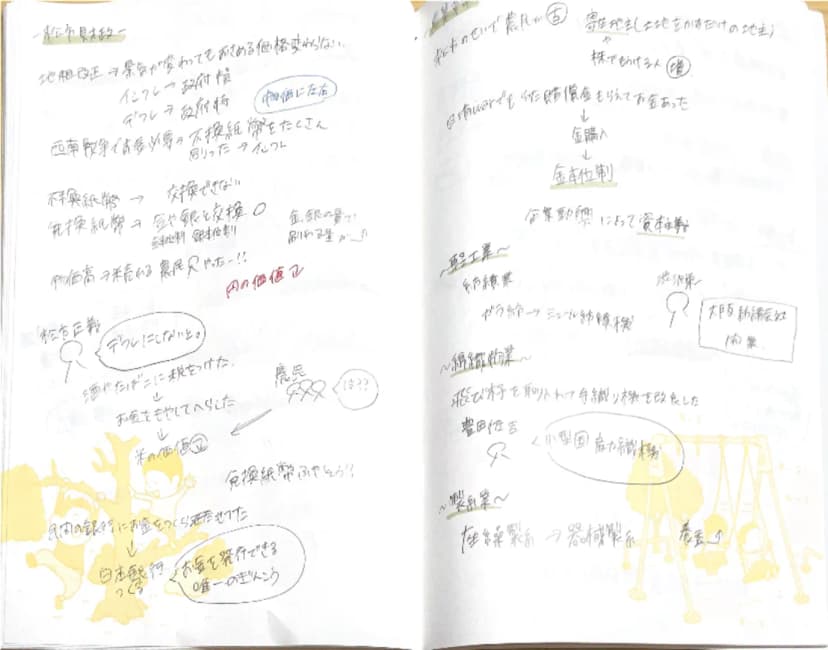 -松方財政-
地租改正→景気が変わってもおさめる価格変わらない
インフレ→政府損
デフレ→政府得
物価に左右
西南戦争でお金必要→不換紙幣をたくさん
刷った→インフレ
不換紙幣→交換できない
兌換紙幣→金や銀と交換〇
金本位制 銀本位制
金、銀の量
刷れる量
物価高→米売れる農民 やったー!!
円の価値
松方正義
デフレにしないと。
酒やたばこに税をつけた
↓
お金をもやしてへらした
↓
米の価値
農民
は??
兌換紙幣ふやそう!
民間の銀行にお金をつくらせた
↓
日本銀行
つくる
お金を発行できる
唯一のぎんこう
松方のせいで
寄生地主(土地をかすだけの地主)
や
株でもうける人
日清warでもらった賠償金もらえてお金あった
↓
金購入
↓
金本位制
企業勃興によって資本主義
~軽工業~
紡績業
ガラ紡→ミュール紡績機
渋沢栄一
大阪紡績会社
開業
~綿織物業~
飛び杼を取り入れて手織り機を改良した
豊田佐吉
小型国産力織機
~製糸業~
座繰製糸→器械製糸
養蚕